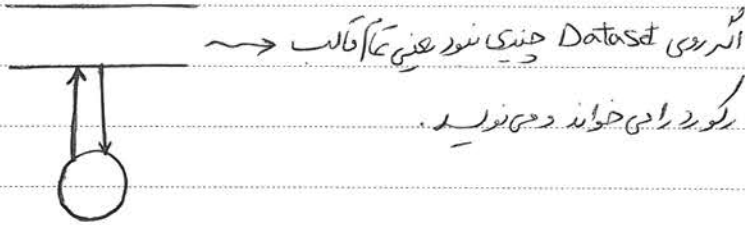 اگر روی Dataset چیزی نبود یعنی تمام قالب
رکورد را می خواند و می نویسد.